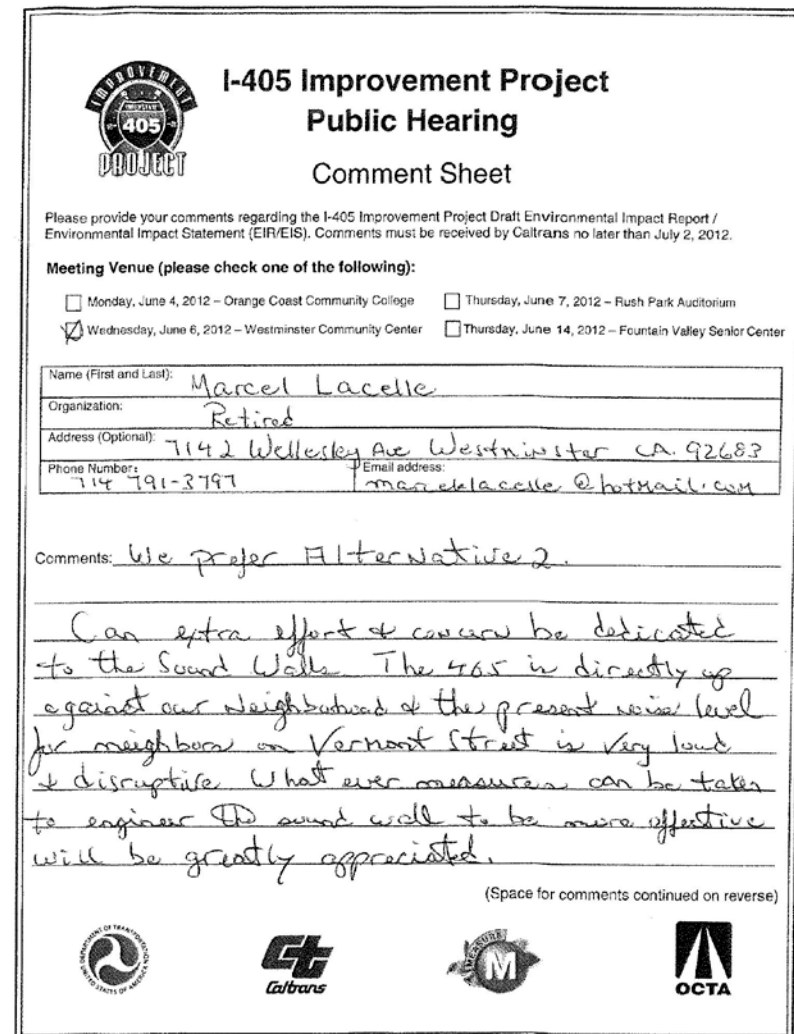 IMPROVEMENT
INTERSTATE
405
PROJECT
I-405 Improvement Project
Public Hearing
Comment Sheet
Please provide your comments regarding the I-405 Improvement Project Draft Environmental Impact Report /
Environmental Impact Statement (EIR/EIS). Comments must be received by Caltrans no later than July 2, 2012.
Meeting Venue (please check one of the following):
Monday, June 4, 2012 – Orange Coast Community College
Thursday, June 7, 2012 – Rush Park Auditorium
Wednesday, June 6, 2012 – Westminster Community Center
Thursday, June 14, 2012 – Fountain Valley Senior Center
Name (First and Last): Marcel Lacelle
Organization: Retired
Address (Optional): 7142 Wellesley Ave Westminster CA. 92683
Phone Number: 714 791-3797
Email address: marcelelacelle@hotmail.com
Comments: We prefer Alternative 2.
Can extra effort & concern be dedicated
to the Sound Walls. The 405 is directly up
against our Neighborhood & the present noise level
for neighbors on Vermont Street is very loud
& disruptive. What ever measures can be taken
to engineer the sound wall to be more effective
will be greatly appreciated.
(Space for comments continued on reverse)
DEPARTMENT OF TRANSPORTATION
UNITED STATES OF AMERICA
Ct
Caltrans
MEASURE
M
OCTA